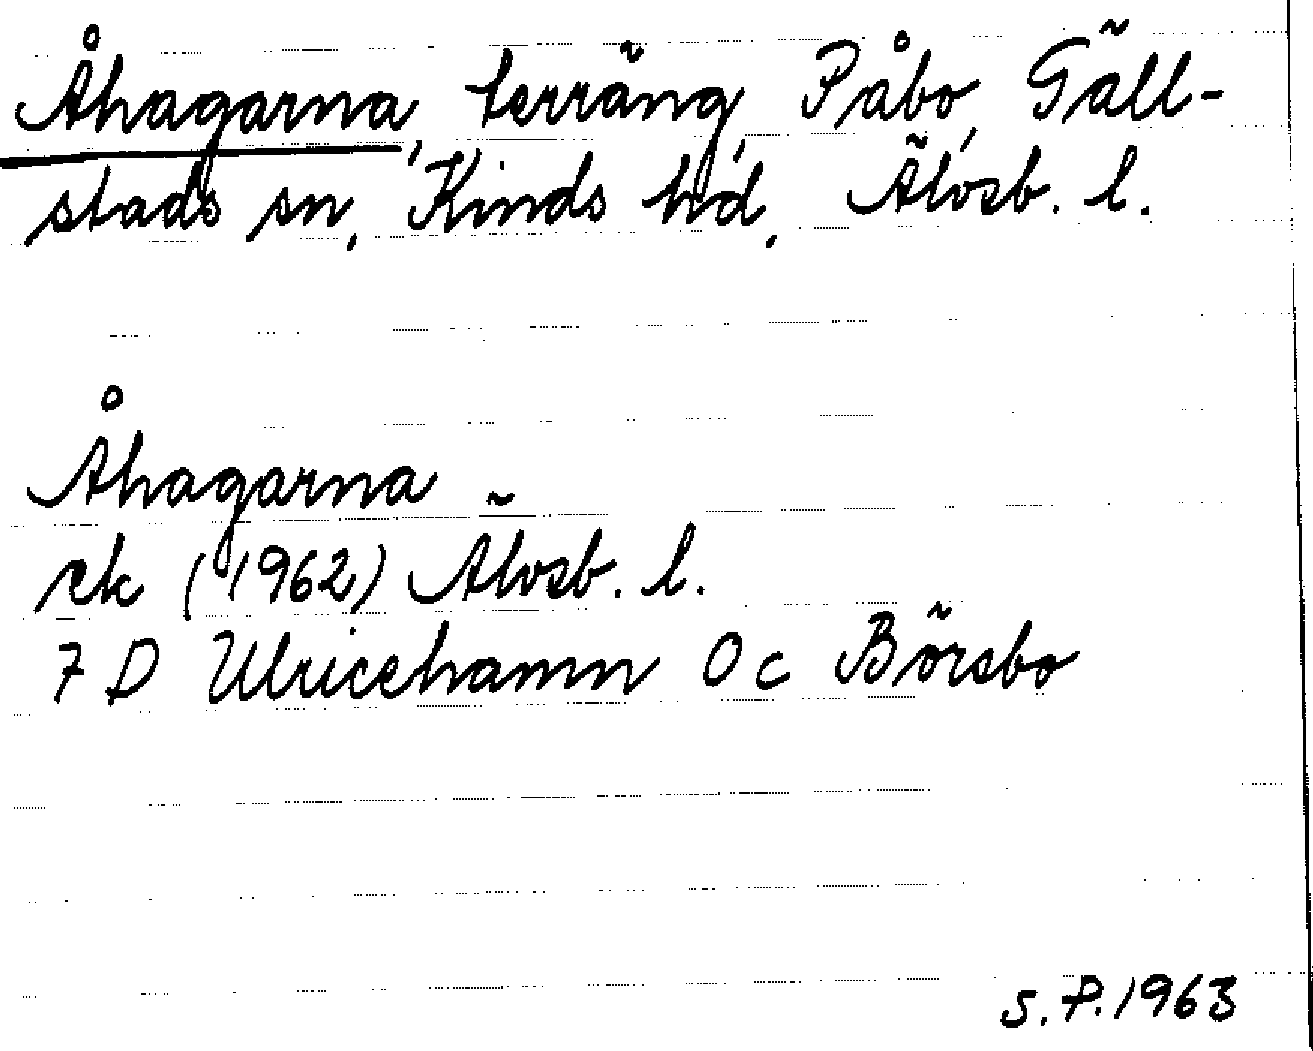 Åhagarna, terräng, Påbo, Gäll-
stads sn, Kinds hd, Älvsb. l.
Åhagarna
ek (1962) Älvsb. l.
7 D Ulricehamn 0 c Börsbo
S.P. 1963